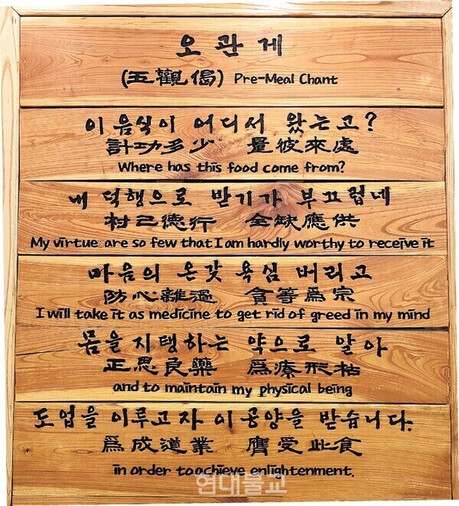 오관게
(五觀偈) Pre-Meal Chant
이 음식이 어디서 왔는고?
計功多少 量彼來處
Where has this food come from?
내 덕행으로 받기가 부끄럽네
村己德行 全缺應供
My virtue are so few that I am hardly worthy to receive it
마음의 온갖 욕심 버리고
防心離過 貪等爲宗
I will take it as medicine to get rid of greed in my mind
몸을 지탱하는 약으로 알아
正思良藥 爲療形枯
and to maintain my physical being
도업을 이루고자 이 공양을 받습니다.
爲成道業 膺受此食
in order to achieve enlightenment.
현대불교